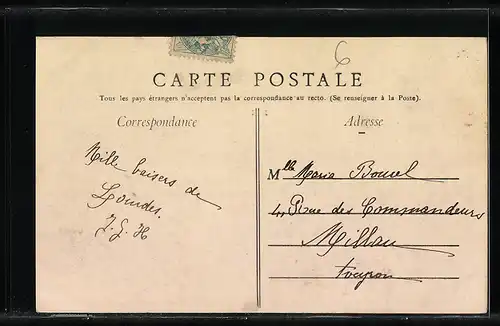 6
CARTE POSTALE
Tous les pays étrangers n'acceptent pas la correspondance au recto. (Se renseigner à la Poste).
Correspondance
Mille baisers de
Lourdes.
J. G. H
Adresse
Mlle Maria
4, Rue des Commandeurs
Millau
Aveyron